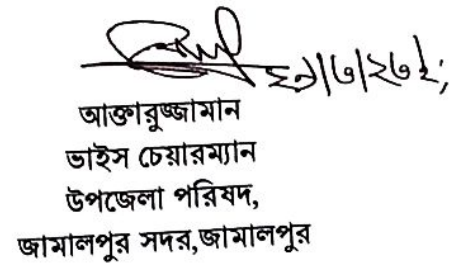 আক্তারুজ্জামান
ভাইস চেয়ারম্যান
উপজেলা পরিষদ,
জামালপুর সদর,জামালপুর